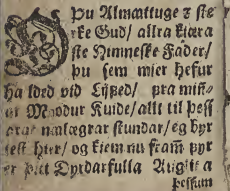 Þu Almættuge z stæ
rke Gud/ allra kiæra
ste Himneske Fader/
þu sem mier hefur
ha lded vid Lijfed/ fra mijn
ar Moodur Kuide/ allt til þess
arar nalægrar stundar/ eg byr
iest hier/ og kiem nu framm fyr
er þitt Dyrdarfulla
þessum